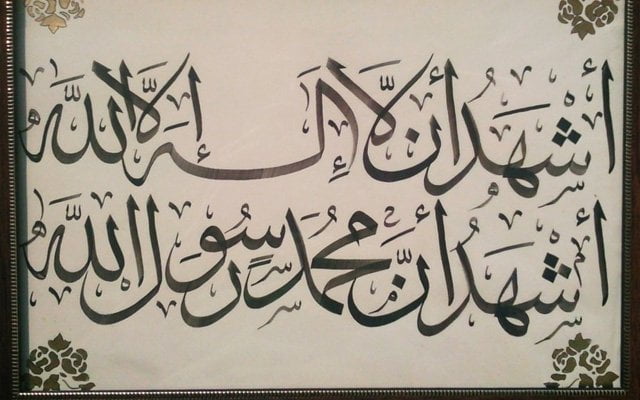 أشهد أن لا إله إلا الله
أشهد أن محمد رسول الله